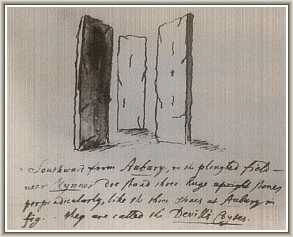 Southward from Aubury, in the ploughed field
near Kynnet doe stand three huge upright stones
perpendicularly, like the three stones at Aubury in
fig. they are called the Devill's Coytes.